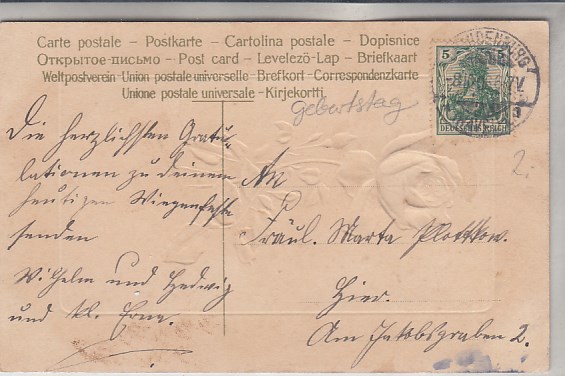 Carte postale – Postkarte – Cartolina postale – Dopisnice
Открытое-письмо – Post card – Levelezö-Lap – Briefkaart
Weltpostverein-Union postale universelle-Brefkort-Correspondenzkarte
Unione postale universale-Kirjekortti.
Geburtstag
5
DEUTSCHES REICH
2.
Die herzlichsten Gratu-
lationen zu deinem
heutigen Wiegenfeste
senden
Wilhelm und Hedwig
und kl. Erna.
An
Fräul. Marta Plottkow.
Hier.
Am Jakobsgraben 2.